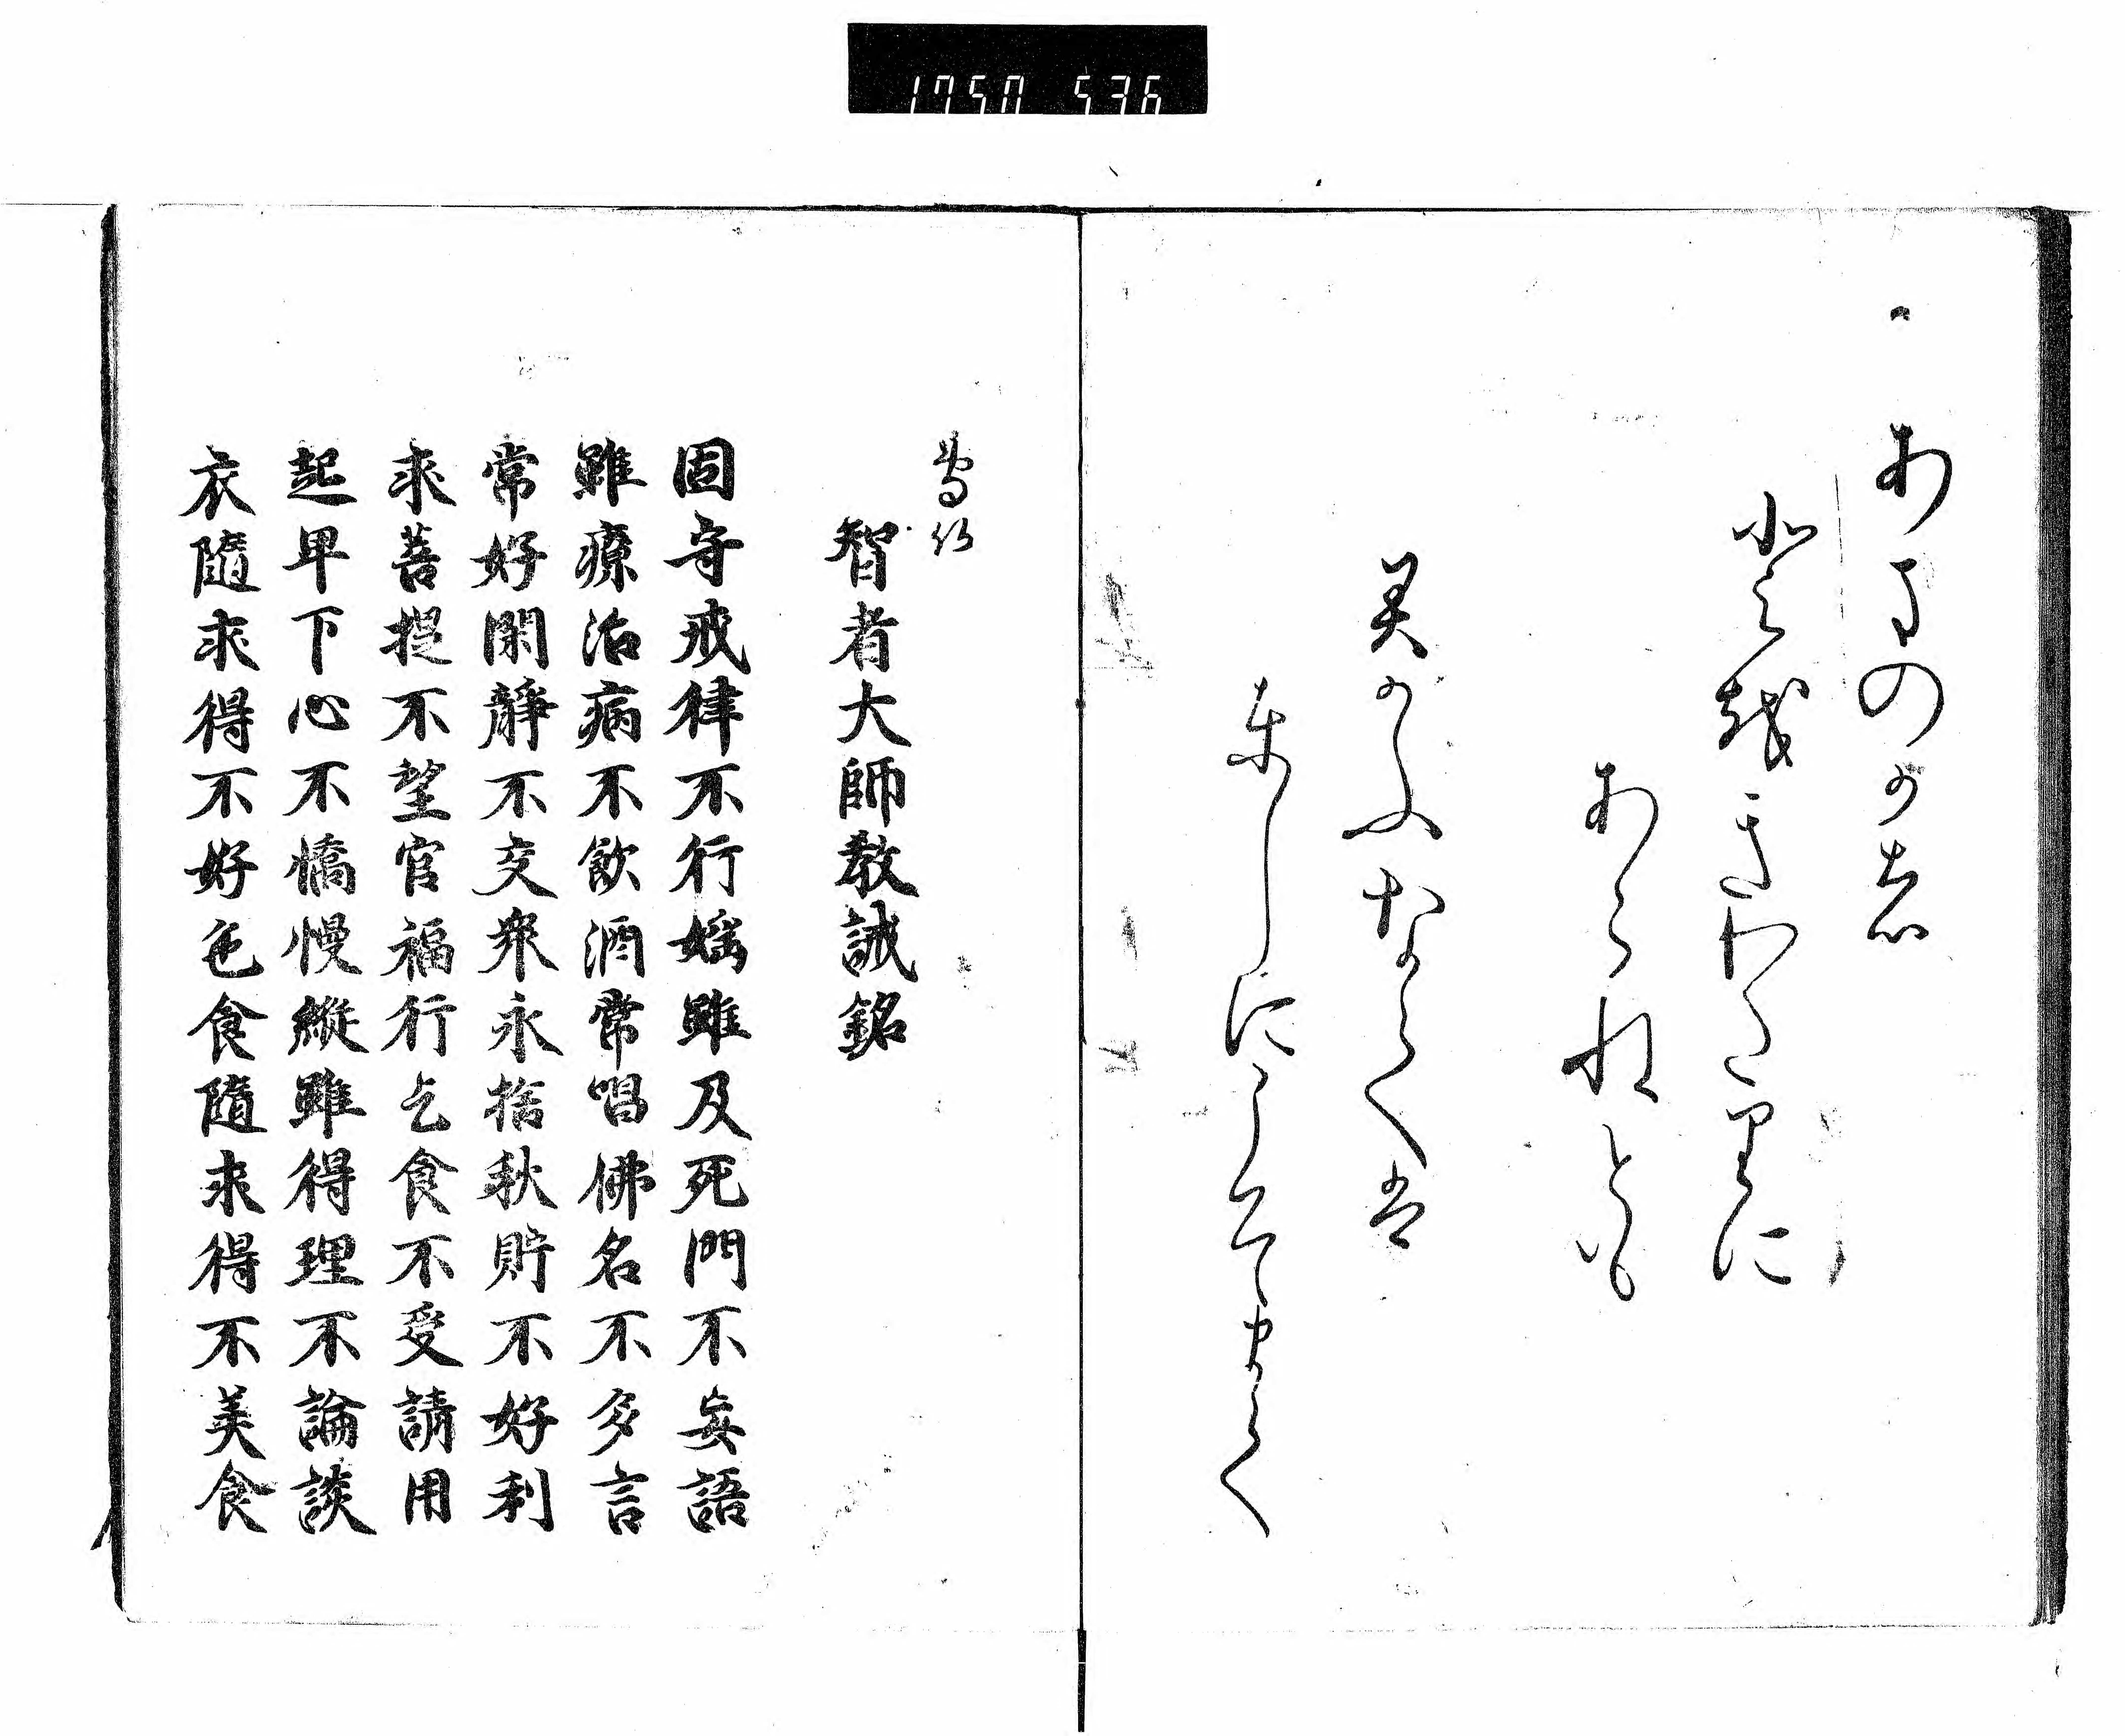 1750 536
あまのか者
越きわたりに
あらねとも
かふなて者
としにこそまて
智者大師教誡銘
固守戒律不行婬雖及死門不妄語
雖療治病不飲酒常唱佛名不多言
常好閑静不交衆永捨秋貯不好利
求菩提不望官福行乞食不受請用
起卑下心不憍慢縱雖得理不論談
衣隨求得不好色食隨求得不美食